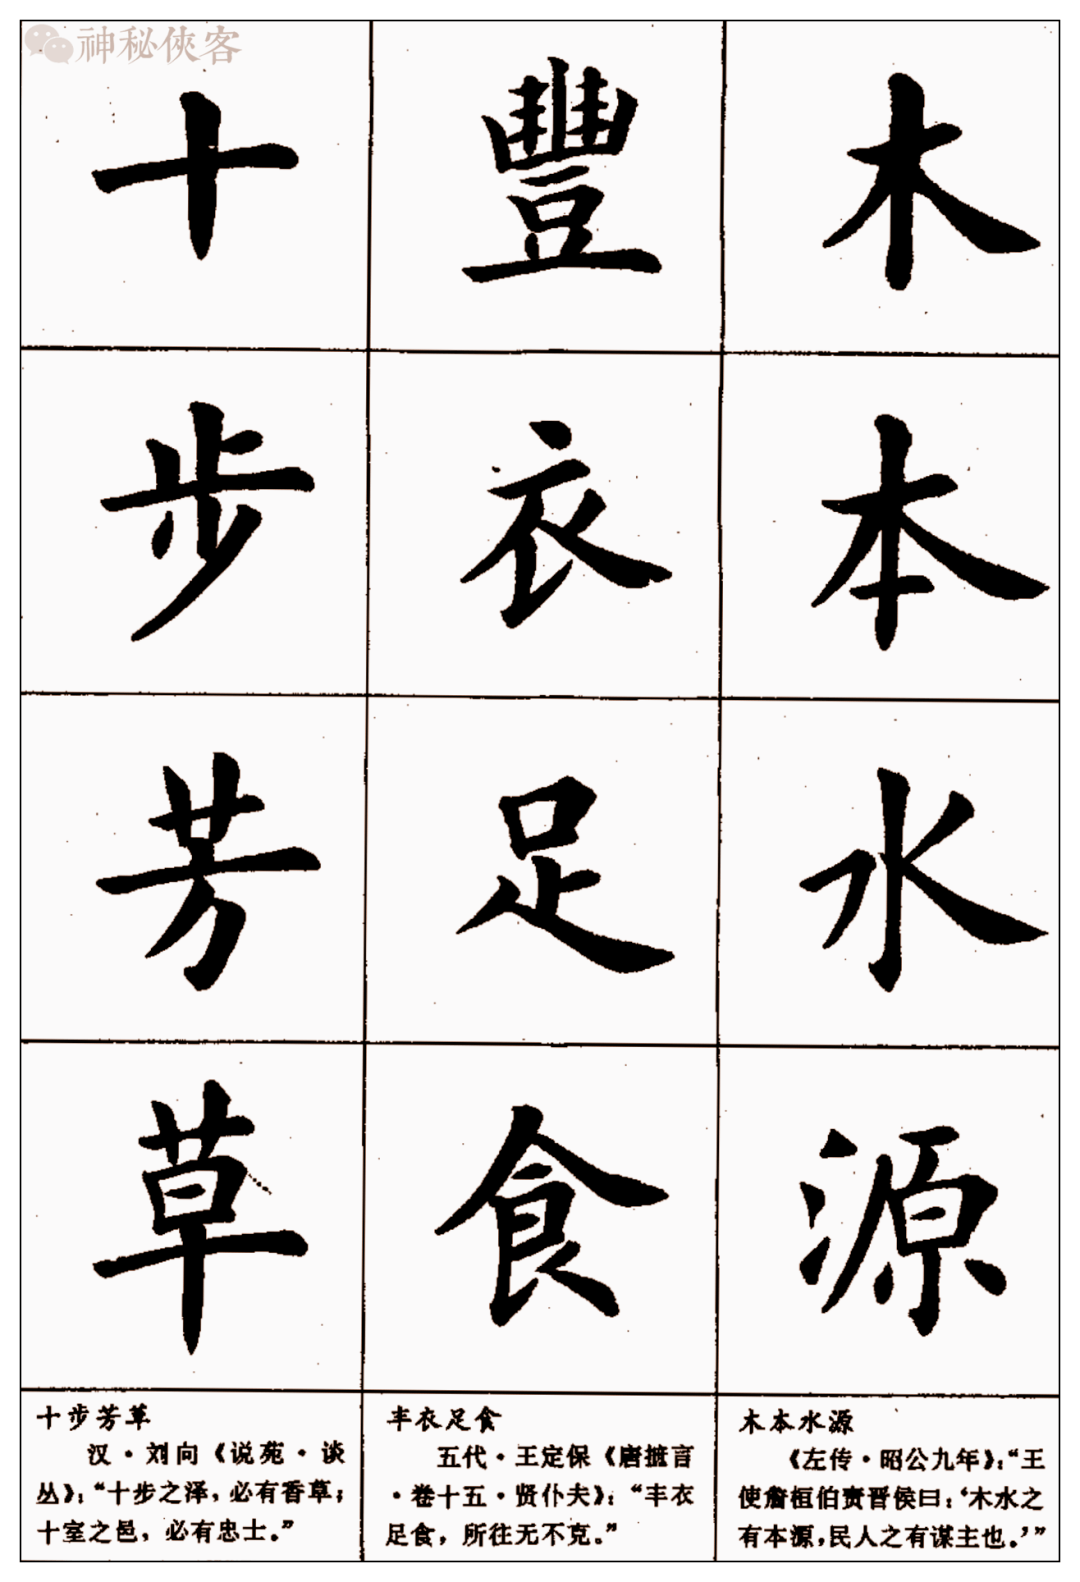 神秘侠客
木
本
水
源
豐
衣
足
食
十
步
芳
草
木本水源
《左传·昭公九年》:“王
使詹桓伯责晋侯曰:‘木水之
有本源,民人之有谋主也。’”
丰衣足食
五代·王定保《唐摭言
·卷十五·贤仆夫》:“丰衣
足食,所往无不克。”
十步芳草
汉·刘向《说苑·谈
丛》:“十步之泽,必有香草;
十室之邑,必有忠士。”